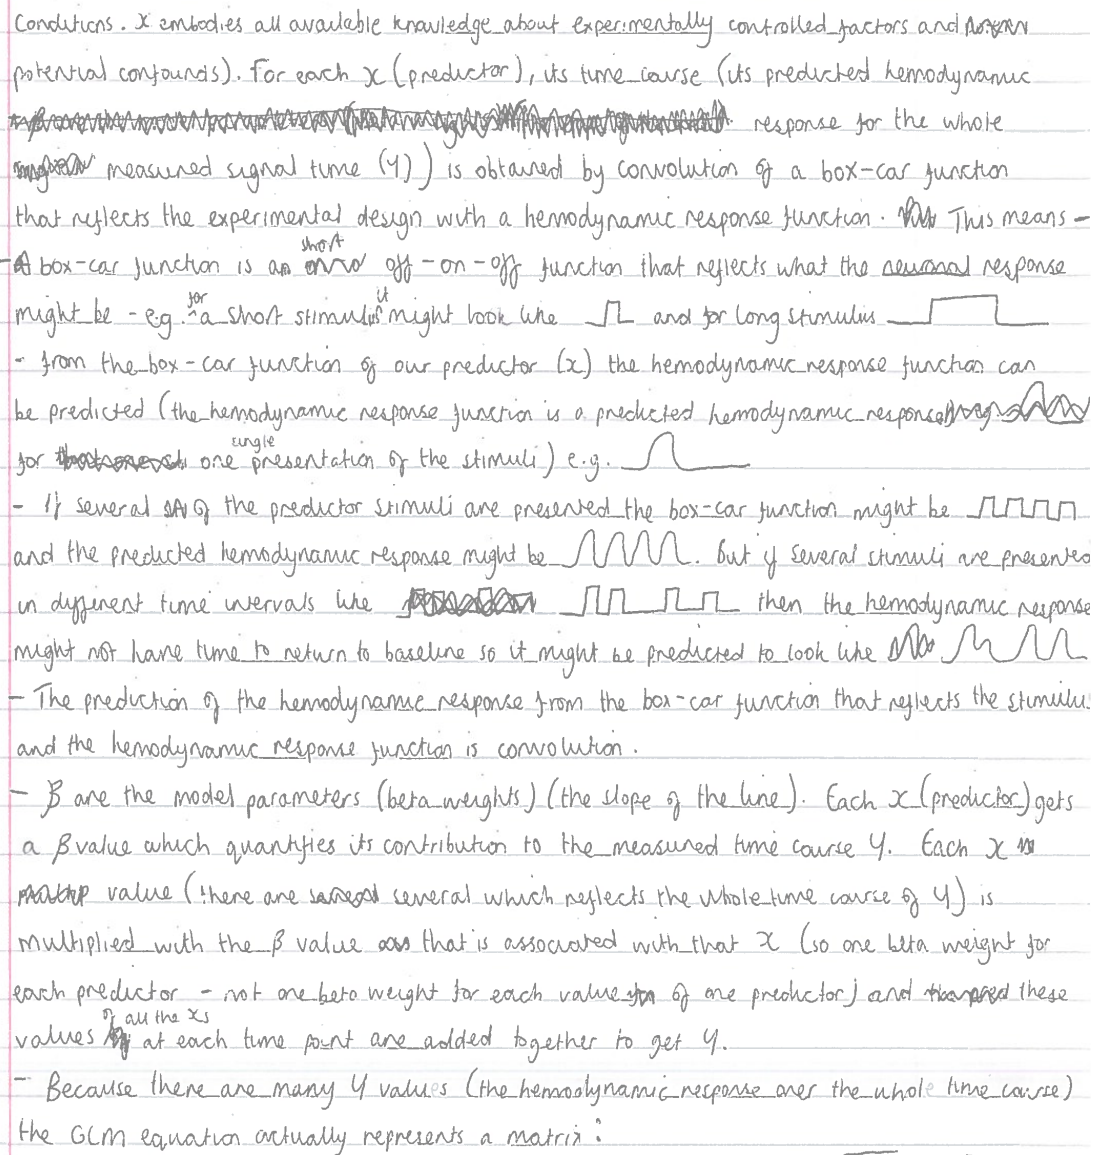 Conditions. X embodies all available knowledge about experimentally controlled factors and
potential confounds). For each X (predictor), its time course (its predicted hemodynamic
response for the whole
measured signal time (Y)) is obtained by convolution of a box-car function
that reflects the experimental design with a hemodynamic response function. This means -
- A box-car function is a short off-on-off function that reflects what the neuronal response
might be - e.g. for a short stimulus it might look like and for long stimulus
- from the box-car function of our predictor (x) the hemodynamic response function can
be predicted (the hemodynamic response function is a predicted hemodynamic response
for one single presentation of the stimuli) e.g.
- If several of the predictor stimuli are presented the box-car function might be
and the predicted hemodynamic response might be . But if several stimuli are presented
in different time intervals like then the hemodynamic response
might not have time to return to baseline so it might be predicted to look like
- The prediction of the hemodynamic response from the box-car function that reflects the stimulu
and the hemodynamic response function is convolution.
- β are the model parameters (beta weights) (the slope of the line). Each X (predictor) gets
a β value which quantifies its contribution to the measured time course Y. Each X
value (there are several which reflects the whole time course of Y) is
multiplied with the β value that is associated with that X (so one beta weight for
each predictor - not one beta weight for each value of one predictor) and these
values of all the Xs at each time point are added together to get Y.
- Because there are many Y values (the hemodynamic response over the whole time course)
the GLM equation actually represents a matrix: